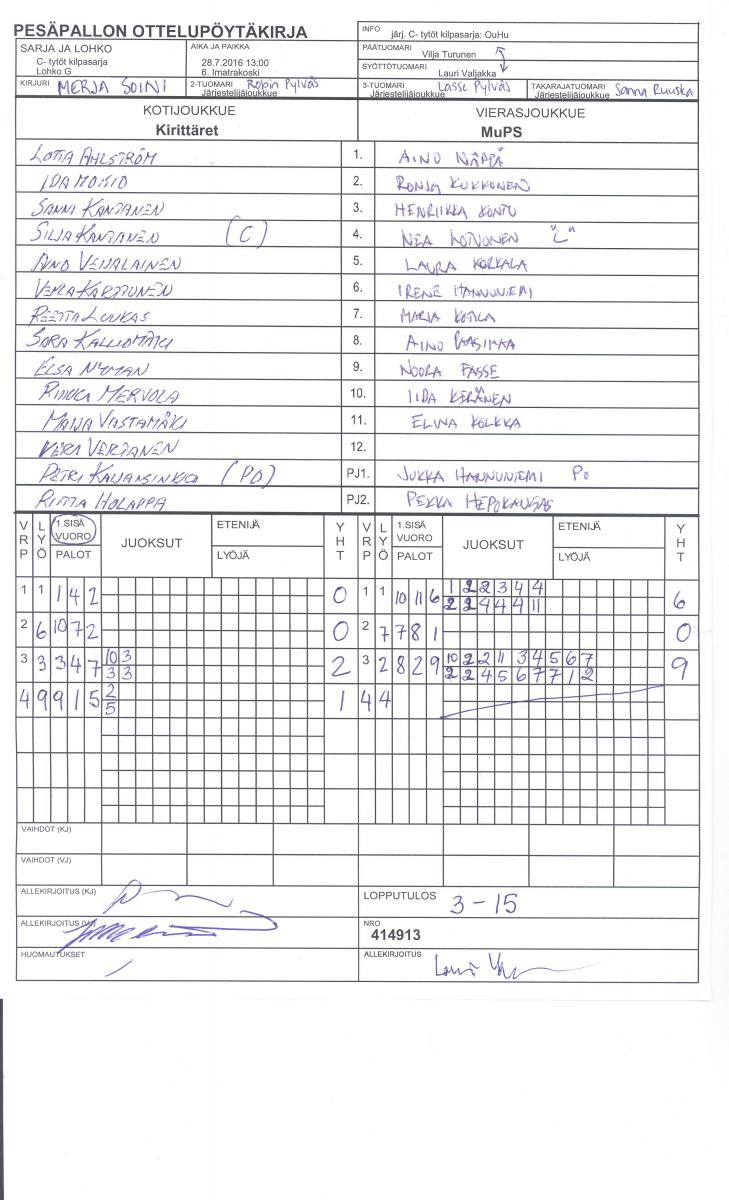 PESÄPALLON OTTELUPÖYTÄKIRJA
INFO järj. C- tytöt kilpasarja: OuHu
SARJA JA LOHKO
C- tytöt kilpasarja
Lohko G
AIKA JA PAIKKA
28.7.2016 13:00
6. Imatrakoski
PÄÄTUOMARI Vilja Turunen
SYÖTTÖTUOMARI Lauri Valjakka
KIRJURI MERJA SOINI
2-TUOMARI Robin Pylväs
Järjestelijäjoukkue
3-TUOMARI Lasse Pylväs
Järjestelijäjoukkue
TAKARAJATUOMARI Sanna Ruuska
Järjestelijäjoukkue
KOTIJOUKKUE
Kirittäret
VIERASJOUKKUE
MuPS
LOTTA AHLSTRÖM 1. AINO NÄPPÄ
IDA MOISIO 2. RONJA KUKKONEN
SANNA KANTANEN 3. HENRIIKKA KONTU
SILJA KANTANEN (C) 4. NEA LOIVONEN "C"
AINO VEIJALAINEN 5. LAURA KORKALA
VENLA KARTTUNEN 6. IRENE HANNUNIEMI
REETTA LUUKAS 7. MARJA KOTILA
SARA KALLIOMÄKI 8. AINO
ELSA NYMAN 9. NOORA FASSE
RIIKKA MERVOLA 10. IIDA KERÄNEN
MAIJA VASTAMÄKI 11. ELINA KOLKKA
VERTANEN 12.
PETRI (PO) PJ1. JUKKA HANNUNIEMI PO
RIITTA HOLAPPA PJ2. PEKKA HEPOKANGAS
VRP LYÖ 1.SISÄ VUORO PALOT JUOKSUT ETENIJÄ LYÖJÄ YHT VRP LYÖ 1.SISÄ VUORO PALOT JUOKSUT ETENIJÄ LYÖJÄ YHT
1 1 1 4 2 0 1 1 10 11 6 1 2 2 3 4 4 6
2 2 4 4 4 11
2 6 10 7 2 0 2 7 7 8 1 0
3 3 3 4 7 10 3 2 3 2 8 2 9 10 2 2 11 3 4 5 6 7 9
3 3 2 2 4 5 6 7 7 1 2
4 9 9 1 5 2 1 4 4
5
VAIHDOT (KJ)
VAIHDOT (VJ)
ALLEKIRJOITUS (KJ)
LOPPUTULOS 3 - 15
ALLEKIRJOITUS (VJ)
NRO
414913
HUOMAUTUKSET
ALLEKIRJOITUS